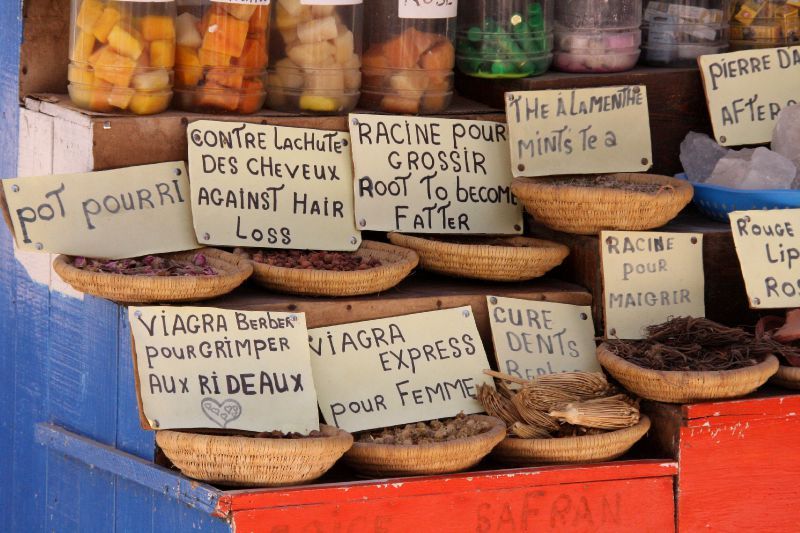 ROSE
POT POURRI
CONTRE LACHUTE
DES CHEVEUX
AGAINST HAIR
LOSS
RACINE POUR
GROSSIR
ROOT TO BECOME
FATTER
THE À LA MENTHE
MINTS TE A
PIERRE DA
AFTER
ROUGE
LIP
RO
RACINE
POUR
MAIGRIR
VIAGRA BERBER
POUR GRIMPER
AUX RIDEAUX
VIAGRA
EXPRESS
POUR FEMME
CURE
DENTS
BERBE
EPICE SAFRAN